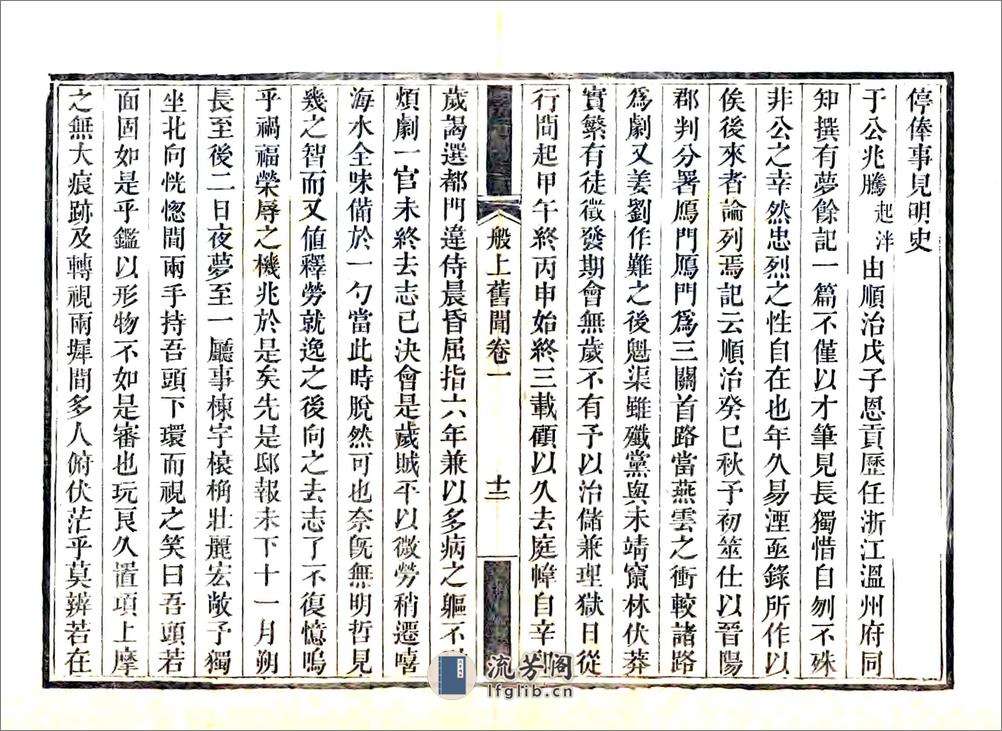 停俸事見明史
于公兆騰起泮由順治戊子恩貢歷任浙江溫州府同
知撰有夢餘記一篇不僅以才筆見長獨惜自刎不殊
非公之幸然忠烈之性自在也年久易湮亟錄所作以
俟後來者論列焉記云順治癸巳秋予初筮仕以晉陽
郡判分署鴈門鴈門為三關首路當燕雲之衝較諸路
為劇又姜劉作難之後魁渠雖殲黨與未靖竄林伏莽
實繁有徒徵發期會無歲不有予以治儲兼理獄日從
行間起甲午終丙申始終三載顧以久去庭幃自辛
般上舊聞卷一
十二
歲謁選都門違侍晨昏屈指六年兼以多病之軀不
煩劇一官未終去志已決會是歲賊平以微勞稍遷嘻
海水全味備於一勺當此時脫然可也奈旣無明哲見
幾之智而又值釋勞就逸之後向之去志了不復憶嗚
乎禍福榮辱之機兆於是矣先是邸報未下十一月朔
長至後二日夜夢至一廳事棟宇榱桷壯麗宏敞予獨
坐北向恍惚間兩手持吾頭下環而視之笑曰吾頭若
面固如是乎鑑以形物不如是審也玩良久置項上摩
之無大痕跡及轉視兩墀間多人俯伏茫乎莫辨若在
流芳閣
lfglib.cn